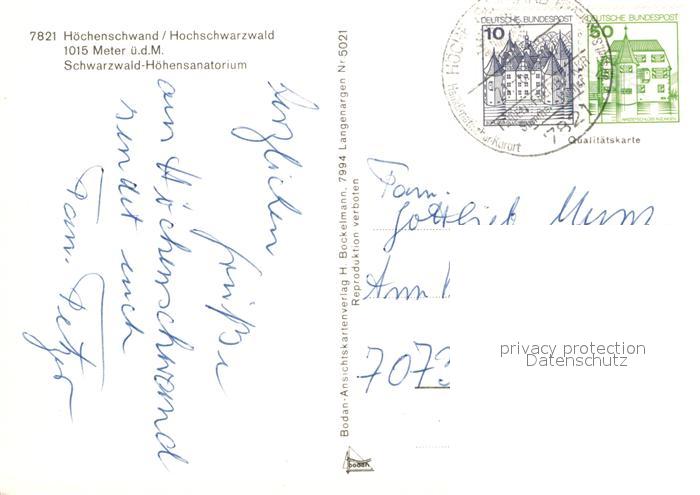 7821 Höchenschwand / Hochschwarzwald
1015 Meter ü.d.M.
Schwarzwald-Höhensanatorium
herzlichen
grüße
aus Höchenschwand
sendet euch
Fam.
Bodan-Ansichtskartenverlag H. Bockelmann, 7994 Langenargen Nr 5021
Reproduktion verboten
bodan
DEUTSCHE BUNDESPOST
10
DEUTSCHE BUNDESPOST
50
7821
Qualitätskarte
Fam.
Gottlieb
Am
7073
privacy protection
Datenschutz